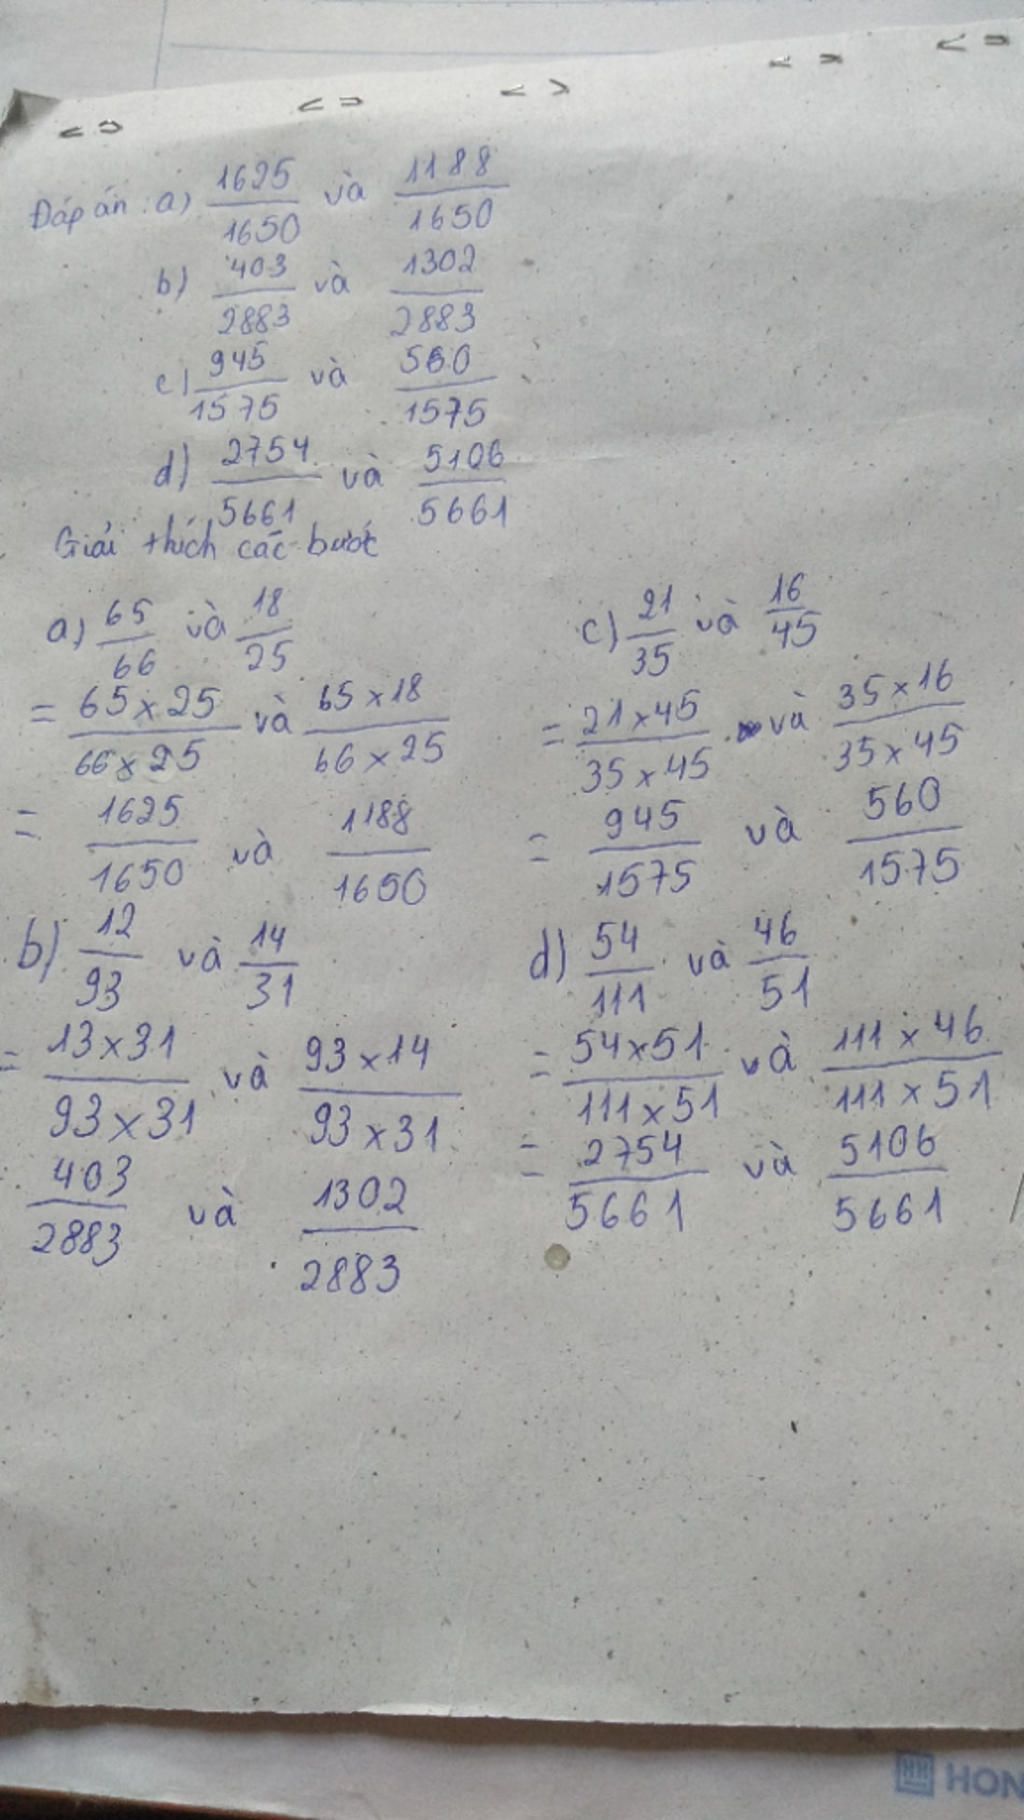 Đáp án: a) 1625/1650 và 1188/1650
b) 403/2883 và 1302/2883
c) 945/1575 và 560/1575
d) 2754/5661 và 5106/5661
Giải thích các bước
a) 65/66 và 18/25
= 65×25/66×25 và 65×18/66×25
= 1625/1650 và 1188/1650
b) 12/93 và 14/31
= 13×31/93×31 và 93×14/93×31
403/2883 và 1302/2883
c) 21/35 và 16/45
= 21×45/35×45 và 35×16/35×45
= 945/1575 và 560/1575
d) 54/111 và 46/51
= 54×51/111×51 và 111×46/111×51
= 2754/5661 và 5106/5661
HON